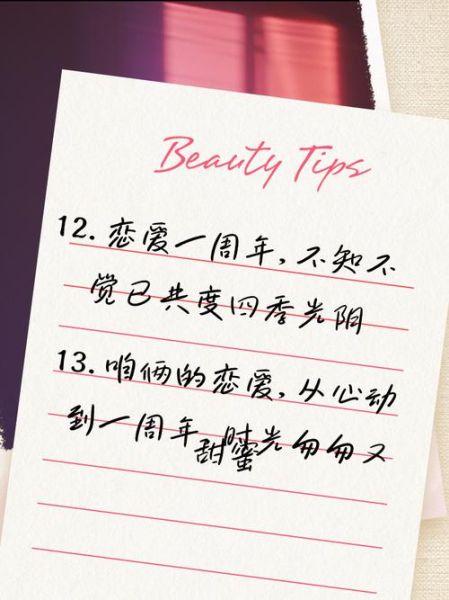 Beauty Tips
12. 恋爱一周年，不知不
觉已共度四季光阴
13. 咱俩的恋爱，从心动
到一周年时光匆匆又
甜蜜